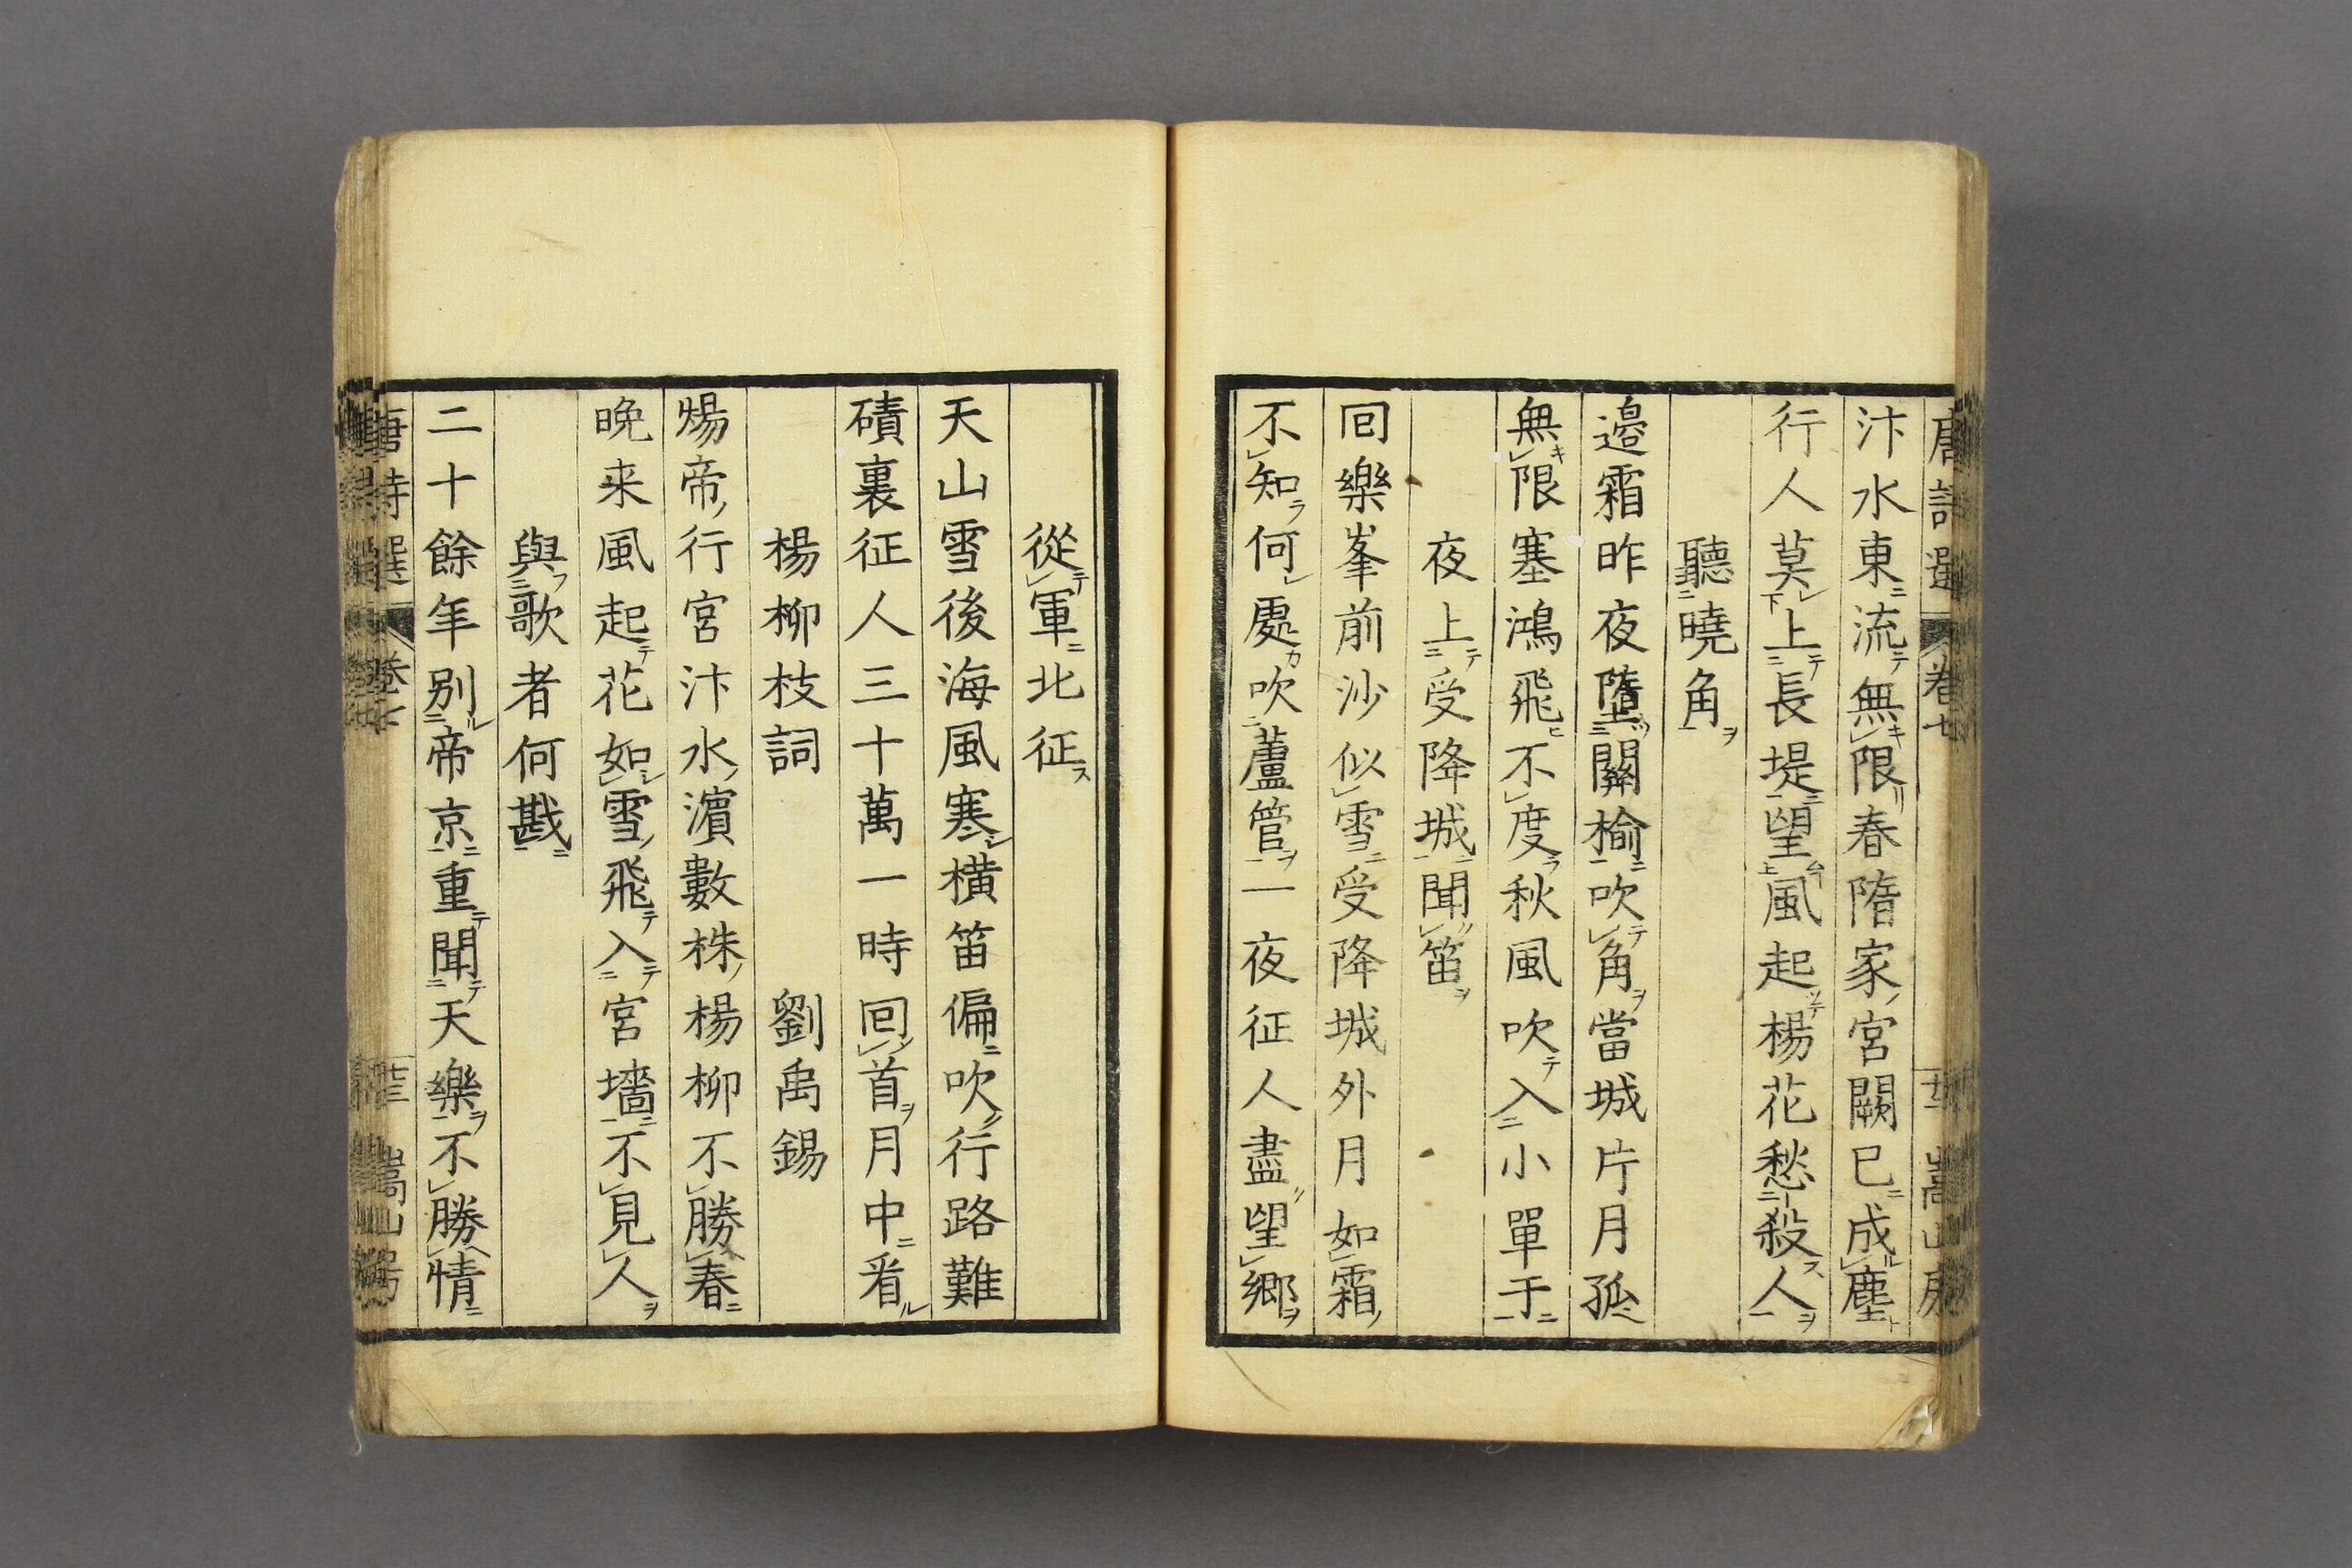 唐詩選 卷七 嵩山房
汴水東流無限春隋家宮闕已成塵
行人莫上長堤望風起楊花愁殺人
聽曉角
邉霜昨夜墮關榆吹角當城片月孤
無限塞鴻飛不度秋風吹入小單于
夜上受降城聞笛
回樂峯前沙似雪受降城外月如霜
不知何處吹蘆管一夜征人盡望鄉
從軍北征
天山雪後海風寒橫笛偏吹行路難
磧裏征人三十萬一時回首月中看
楊柳枝詞 劉禹錫
煬帝行宮汴水濵數株楊柳不勝春
晚来風起花如雪飛入宮墻不見人
與歌者何戡
二十餘年别帝京重聞天樂不勝情
唐詩選